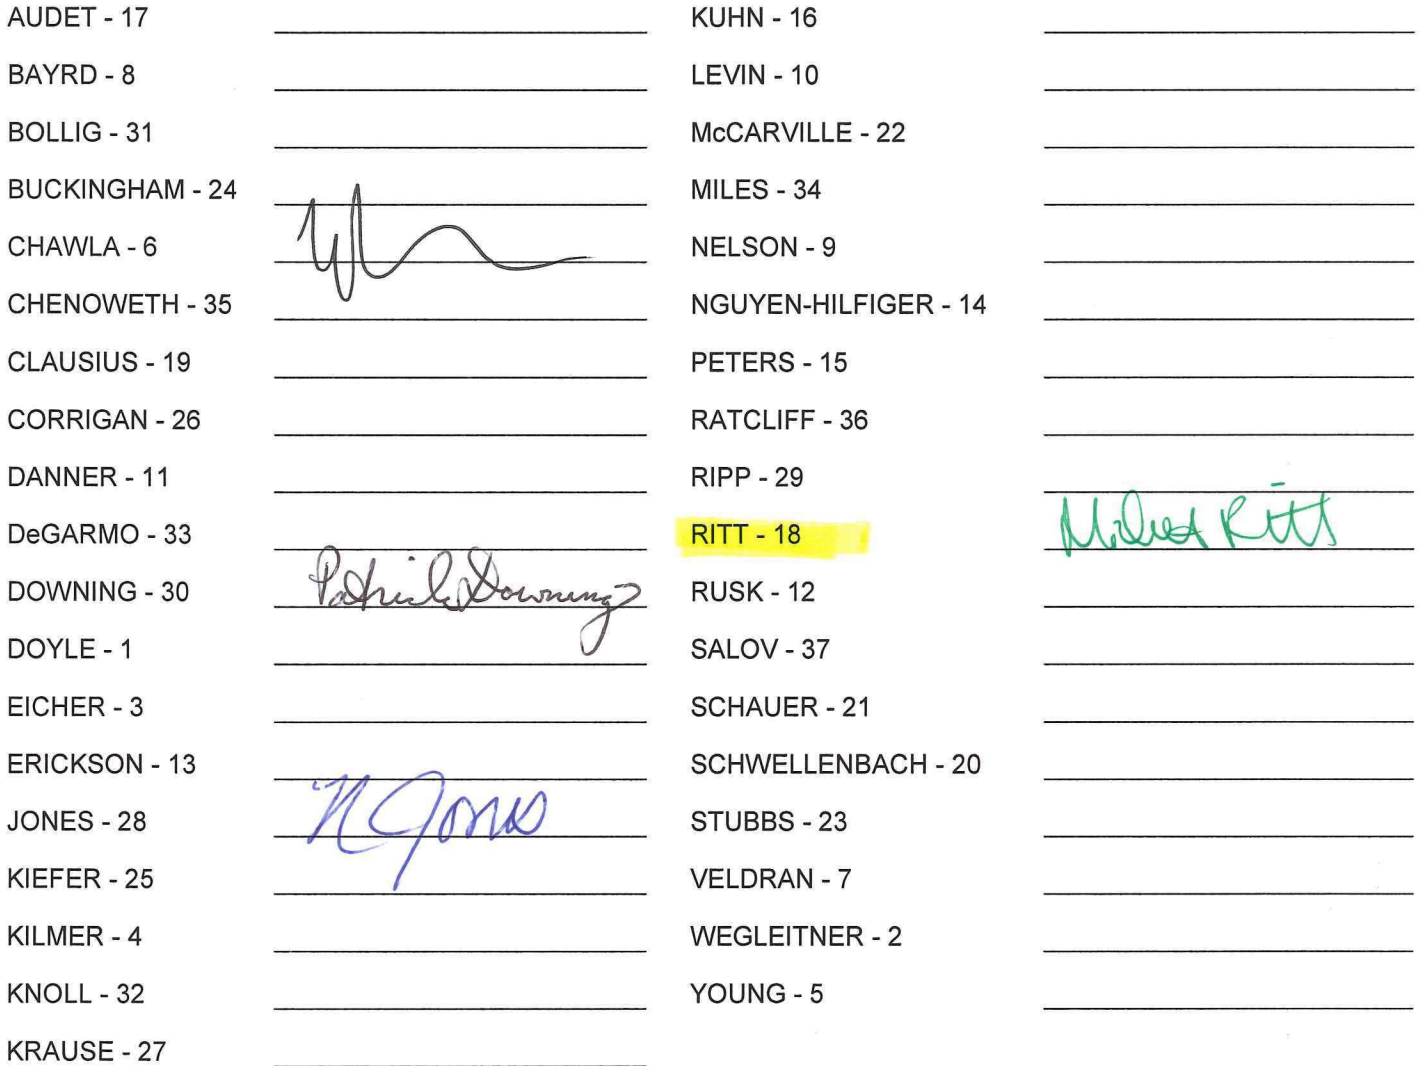 AUDET - 17
BAYRD - 8
BOLLIG - 31
BUCKINGHAM - 24
CHAWLA - 6
CHENOWETH - 35
CLAUSIUS - 19
CORRIGAN - 26
DANNER - 11
DeGARMO - 33
DOWNING - 30 Patrick Downing
DOYLE - 1
EICHER - 3
ERICKSON - 13
JONES - 28 N Jones
KIEFER - 25
KILMER - 4
KNOLL - 32
KRAUSE - 27
KUHN - 16
LEVIN - 10
McCARVILLE - 22
MILES - 34
NELSON - 9
NGUYEN-HILFIGER - 14
PETERS - 15
RATCLIFF - 36
RIPP - 29
RITT - 18 Ritt
RUSK - 12
SALOV - 37
SCHAUER - 21
SCHWELLENBACH - 20
STUBBS - 23
VELDRAN - 7
WEGLEITNER - 2
YOUNG - 5